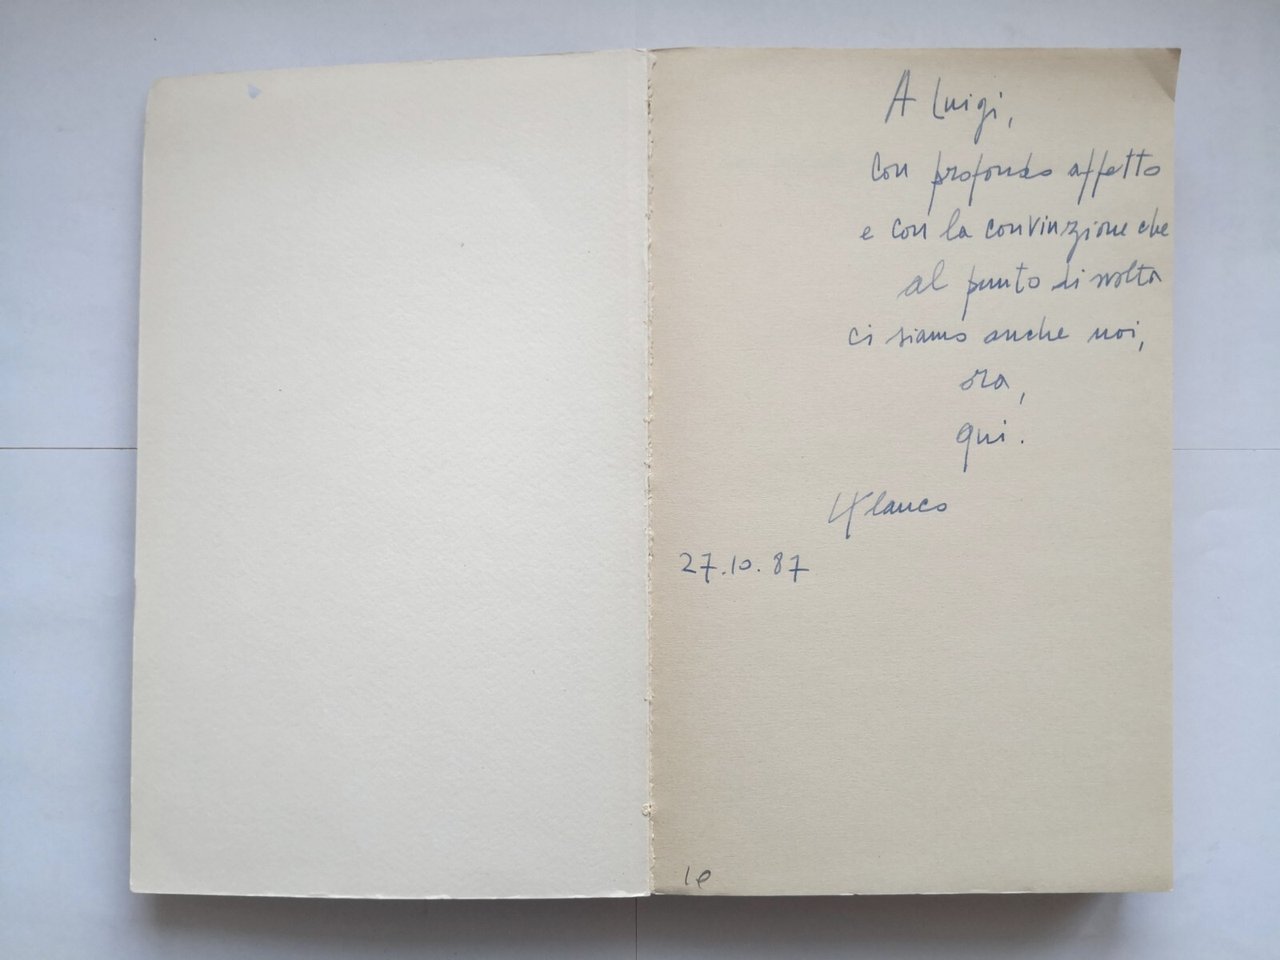 A Luigi,
con profondo affetto
e con la convinzione che
al punto di svolta
ci siamo anche noi,
ora,
qui.
27.10.87